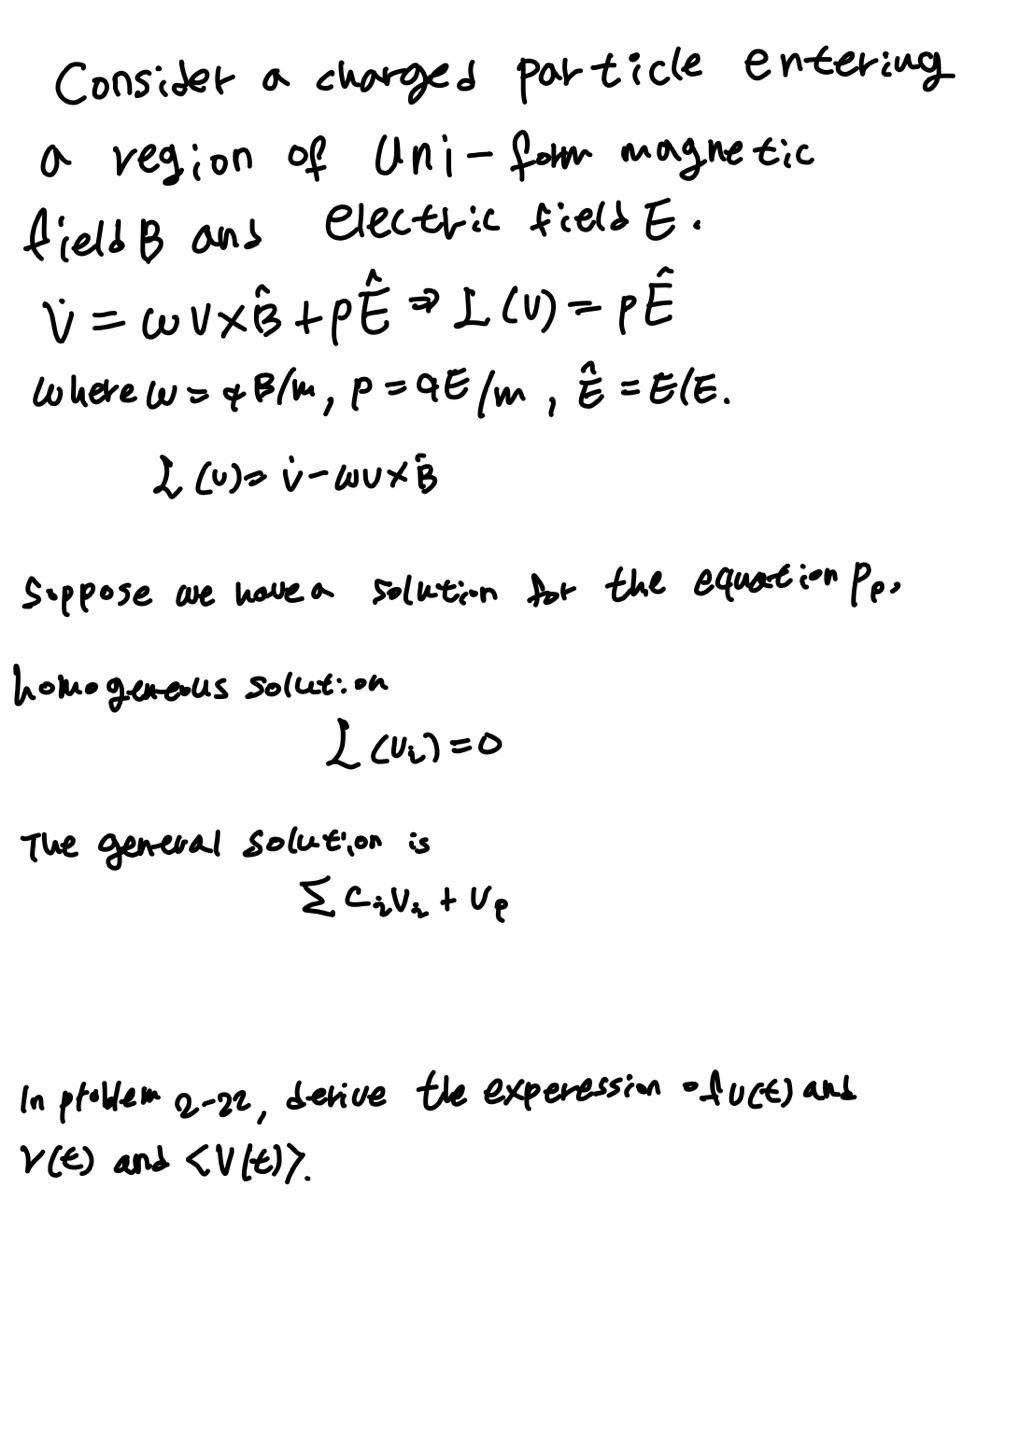 Consider a charged particle entering
a region of Uni-form magnetic
field B and electric field E.
v̇ = ωv×B̂+pÊ ⇒ L(v) = pÊ
where ω = qB/m, p = qE/m, Ê = E/E.
L(v) = v̇-ωv×B̂
Suppose we have a solution for the equation Pp,
homogeneous solution
L(vi) = 0
The general solution is
Σ civi + vp
In problem 2-22, derive the experession of v(t) and
r(t) and <v(t)>.